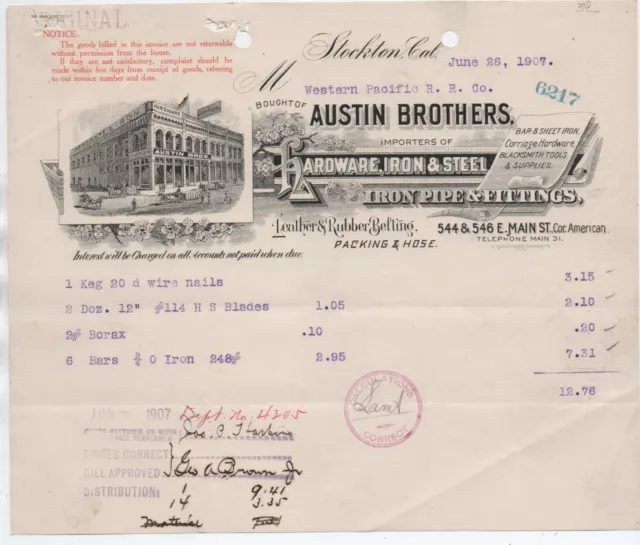 ORIGINAL
NOTICE.
The goods billed in this invoice are not returnable
without permission from the house.
If they are not satisfactory, complaint should be
made within five days from receipt of goods, referring
to our invoice number and date.
Stockton, Cal. June 26, 1907.
M Western Pacific R. R. Co.
6217
BOUGHT OF AUSTIN BROTHERS.
IMPORTERS OF
HARDWARE, IRON & STEEL
IRON PIPE & FITTINGS,
BAR & SHEET IRON,
Carriage Hardware,
BLACKSMITH TOOLS
& SUPPLIES.
AUSTIN BROS.
Leather & Rubber Belting,
PACKING & HOSE.
544 & 546 E. MAIN ST. Cor. American.
TELEPHONE MAIN 31.
Interest will be Charged on all accounts not paid when due.
1 Keg 20 d wire nails 3.15
2 Doz. 12" #114 H S Blades 1.05 2.10
2# Borax .10 .20
6 Bars 3/4 O Iron 248# 2.95 7.31
12.76
CALCULATIONS
CORRECT
JUN 1907 Dept. no. 4205
PRICES CORRECT
BILL APPROVED Geo A Brown Jr
DISTRIBUTION:
1 9.41
14 3.35
Material